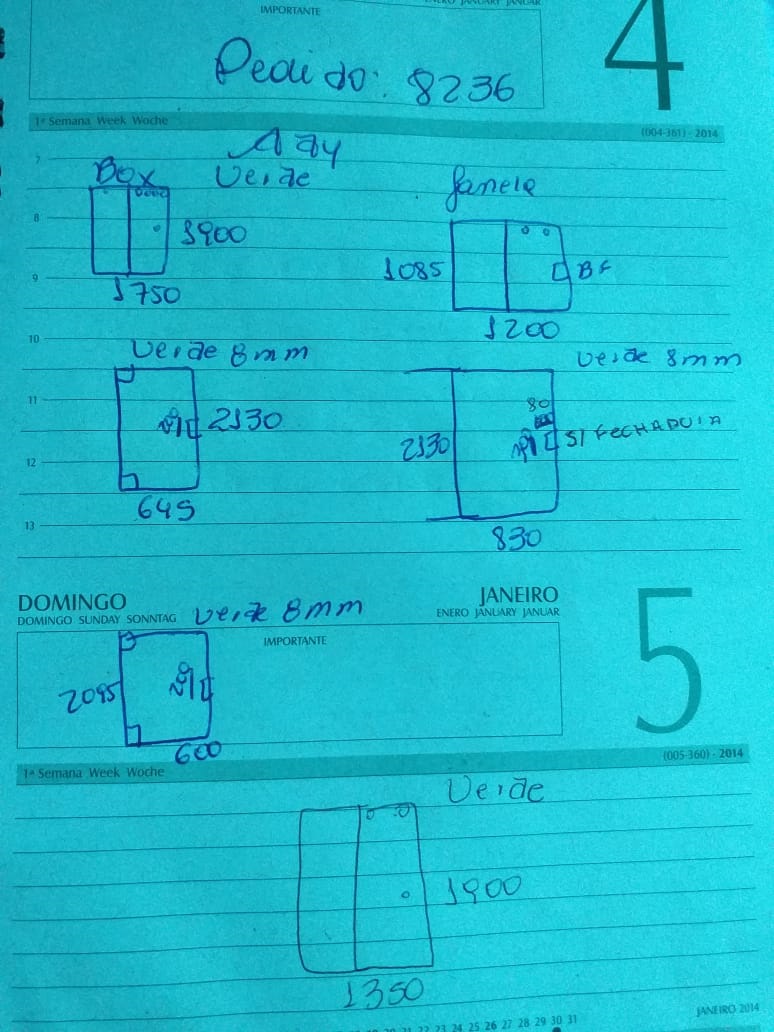 ENERO JANUARY JANUAR
IMPORTANTE
4
Pedido: 8236
1ª Semana Week Woche
(004-361) - 2014
7
Box
Verde
Janela
8
1900
1085
BF
9
1750
1200
10
Verde 8mm
Verde 8mm
11
2130
80
2130
S/ FECHADURA
12
645
13
830
DOMINGO
DOMINGO SUNDAY SONNTAG
Verde 8mm
JANEIRO
ENERO JANUARY JANUAR
5
IMPORTANTE
2095
600
1ª Semana Week Woche
(005-360) - 2014
Verde
1900
1350
22 23 24 25 26 27 28 29 30 31
JANEIRO 2014